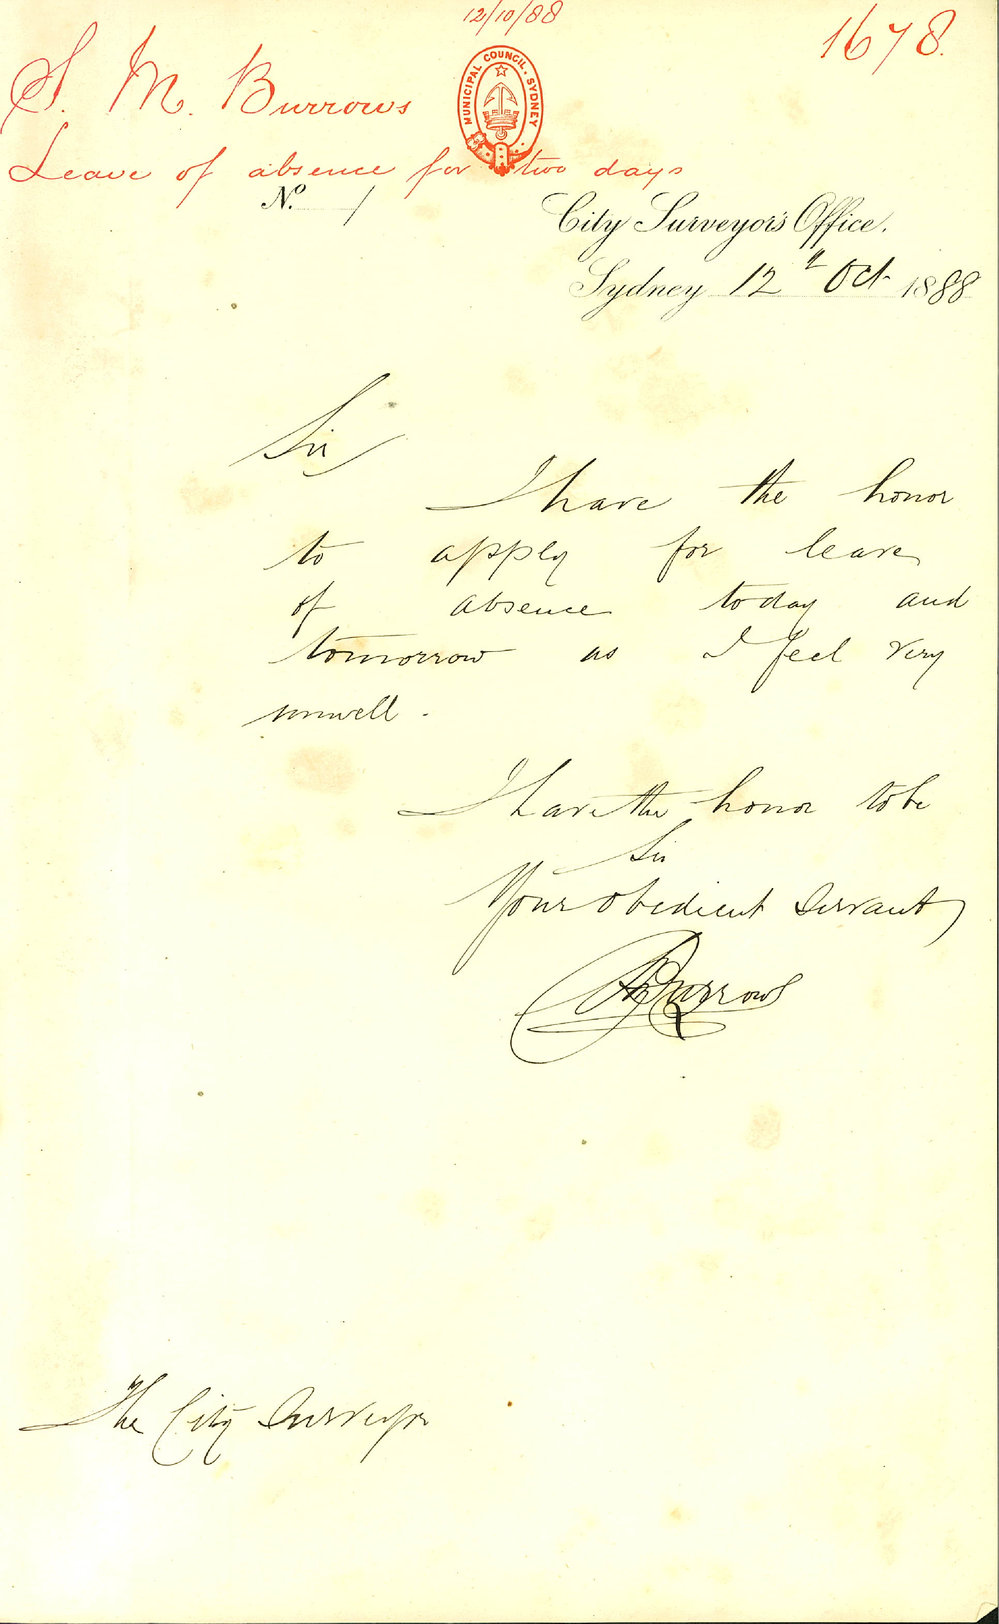 12/10/88
1678.
S. M. Burrows
MUNICIPAL COUNCIL. SYDNEY
Leave of absence for two days
No. 1
City Surveyor's Office.
Sydney 12th Oct 1888
Sir
I have the honor
to apply for leave
of absence today and
tomorrow as I feel very
unwell.
I have the honor to be
Sir
Your obedient Servant
Burrows
The City Surveyor